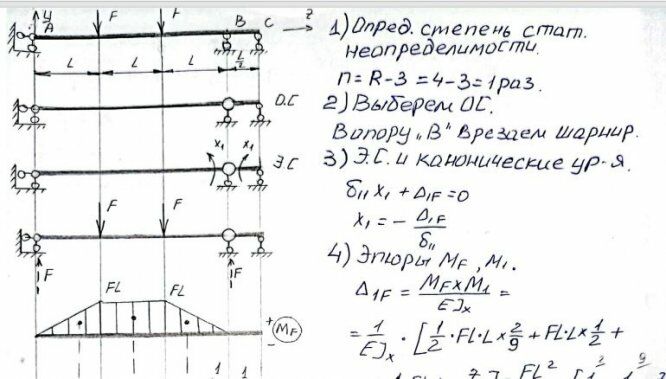 y
A
F
F
B
C
z
L
L
L
L/2
О.С
x₁
x₁
Э.С
F
F
F
F
FL
FL
+
M_F
-
1
1
1) Опред. степень стат.
неопределимости.
n = R - 3 = 4 - 3 = 1 раз.
2) Выберем О.С.
В опору „В" врезаем шарнир.
3) Э.С. и канонические ур-я.
δ₁₁ x₁ + Δ₁F = 0
x₁ = - Δ₁F / δ₁₁
4) Эпюры M_F, M₁.
Δ₁F = M_F × M₁ / EJₓ =
= 1/EJₓ · [1/2 · FL · L × 2/9 + FL · L × 1/2 +